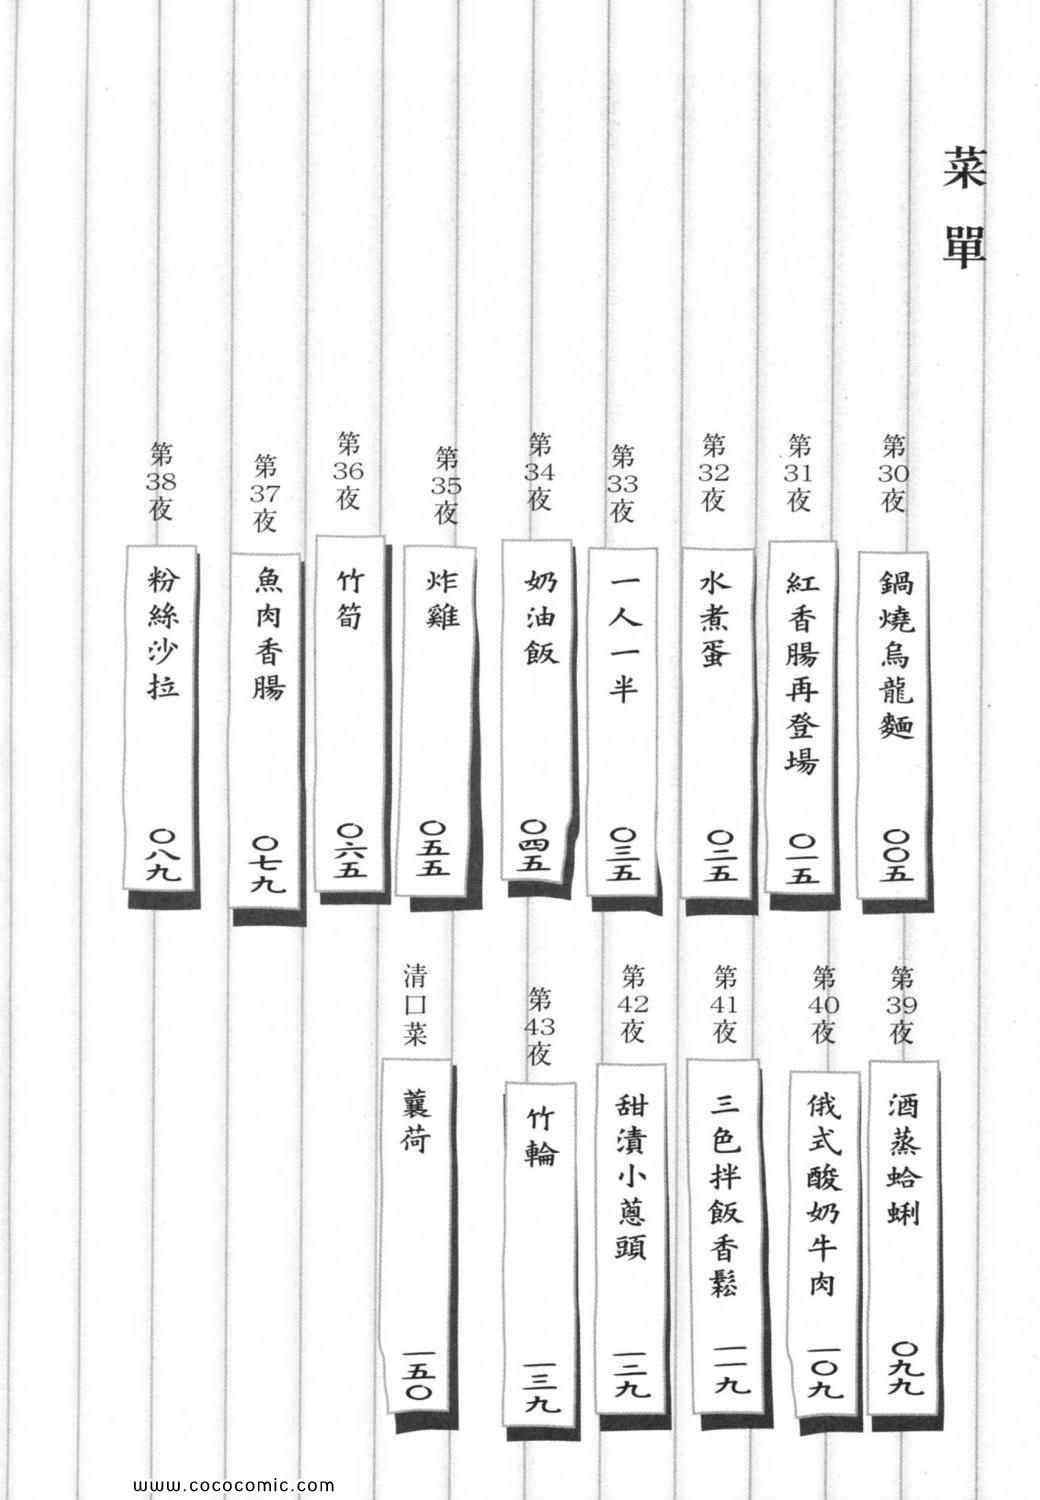 菜單
第30夜
鍋燒烏龍麵
〇〇五
第31夜
紅香腸再登場
〇一五
第32夜
水煮蛋
〇二五
第33夜
一人一半
〇三五
第34夜
奶油飯
〇四五
第35夜
炸雞
〇五五
第36夜
竹筍
〇六五
第37夜
魚肉香腸
〇七九
第38夜
粉絲沙拉
〇八九
第39夜
酒蒸蛤蜊
〇九九
第40夜
俄式酸奶牛肉
一〇九
第41夜
三色拌飯香鬆
一一九
第42夜
甜漬小蔥頭
一二九
第43夜
竹輪
一三九
清口菜
蘘荷
一五〇
www.cococomic.com